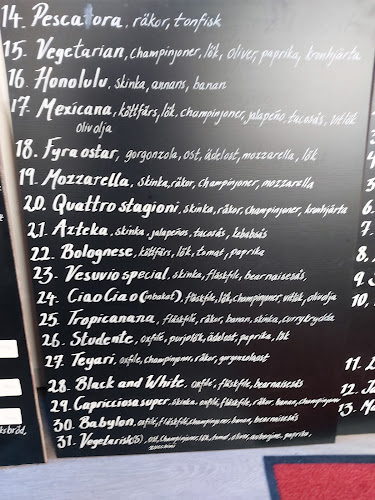 14. Pescatora, räkor, tonfisk
15. Vegetarian, champinjoner, lök, oliver, paprika, kronhjärta
16. Honolulu, skinka, annans, banan
17. Mexicana, köttfärs, lök, champinjoner, jalapeño, tacosås, vitlök
olivolja
18. Fyra ostar, gorgonzola, ost, ädelost, mozzarella, lök
19. Mozzarella, skinka, räkor, champinjoner, mozzarella
20. Quattro stagioni, skinka, räkor, champinjoner, kronhjärta
21. Azteka, skinka, jalapeños, tacosås, kebabsås
22. Bolognese, köttfärs, lök, tomat, paprika
23. Vesuvio special, skinka, fläskfile, bearnaisesås,
24. Ciao Ciao (inbakat), fläskfile, lök, champinjoner, vitlök, olivolja
25. Tropicanana, fläskfile, räkor, banan, skinka, currykrydda
26. Studente, oxfile, purjolök, ädelost, paprika, lök
27. Teyari, oxfile, champinjoner, räkor, gorgonzolaost
28. Black and White, oxfile, fläskfile, bearnaisesås
29. Capricciosa super, skinka, oxfile, fläskfile, räkor, banan, champinjoner
30. Babylon, oxfile, fläskfile, champinjoner, banan, bearnaisesås
31. Vegetarisk(S), ost, champinjoner, lök, tomat, oliver, aubergine, paprika,
zucchini
7.
8.
9.
10.
11.
12.
13.